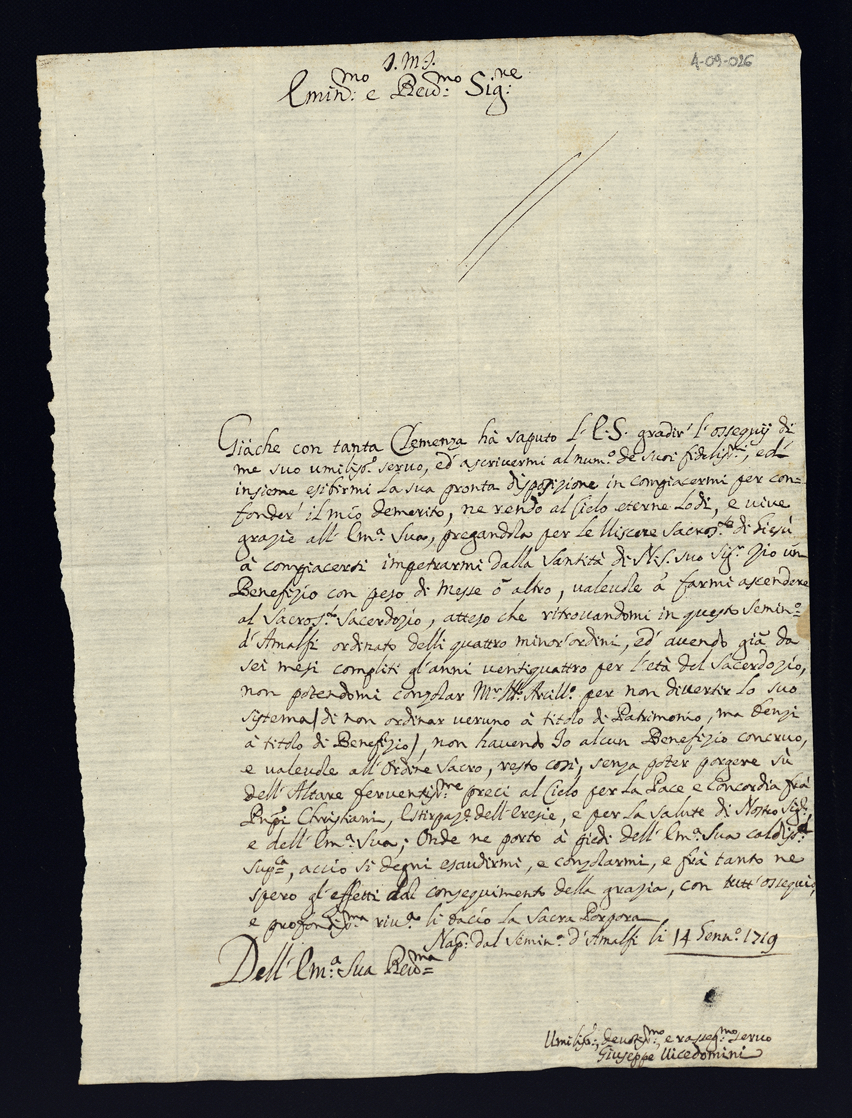 J.M.J.
4-09-026
Emin:mo e Reud:mo Sig:re
Giache con tanta Clemenza hà saputo l'E.S. gradir l'ossequij di
me suo umiliss:o seruo, ed' ascriuermi al num:o de suoi fideliss:i, ed'
insieme esibirmi la sua pronta disposizione in compiacermi per con=
fonder' il mio demerito, ne rendo al Cielo eterne lodi, e viue
grazie all'Em:a Sua, pregandola per le Uiscere Sacros:te di Giesù
à compiacersi impetrarmi dalla Santità di N.S. suo Sig:r Zio un
Benefizio con peso di Messe ò altro, valeuole à farmi ascendere
al Sacros:to Sacerdozio, atteso che ritrouandomi in questo Semin:o
d'Amalfi ordinato delli quattro minor'ordini, ed' auendo già da
sei mesi compliti gl'anni uentiquattro per l'età del Sacerdozio,
non potendomi consolar M:r Ill:o Arciu:o per non diuertir lo suo
sistema (di non ordinar ueruno à titolo di Patrimonio, ma benzi
à titolo di Benefizio), non hauendo Io alcun Benefizio congruo,
e valeuole all'Ordine Sacro, resto così, senza poter porgere sù
dell'Altare feruentiss:me preci al Cielo per la Pace e Concordia frà
Pnpi Christiani, Estirpaz:e dell'Eresie, e per la salute di Nostro Sig:re,
e dell'Em:a Sua; Onde ne porto à piedi dell'Em:a Sua caldiss:a
Sup:a, acciò si degni esaudirmi, e consolarmi, e frà tanto ne
spero gl'effetti dal conseguimento della grazia, con tutt'ossequio,
e profondiss:ma riu:a li bacio la Sacra Porpora
Nap: dal Semin:o d'Amalfi li 14 Genn:o 1719
Dell'Em:a Sua Reud:ma
Umiliss:o, deuotiss:mo, e rasseg:mo seruo
Giuseppe Uicedomini